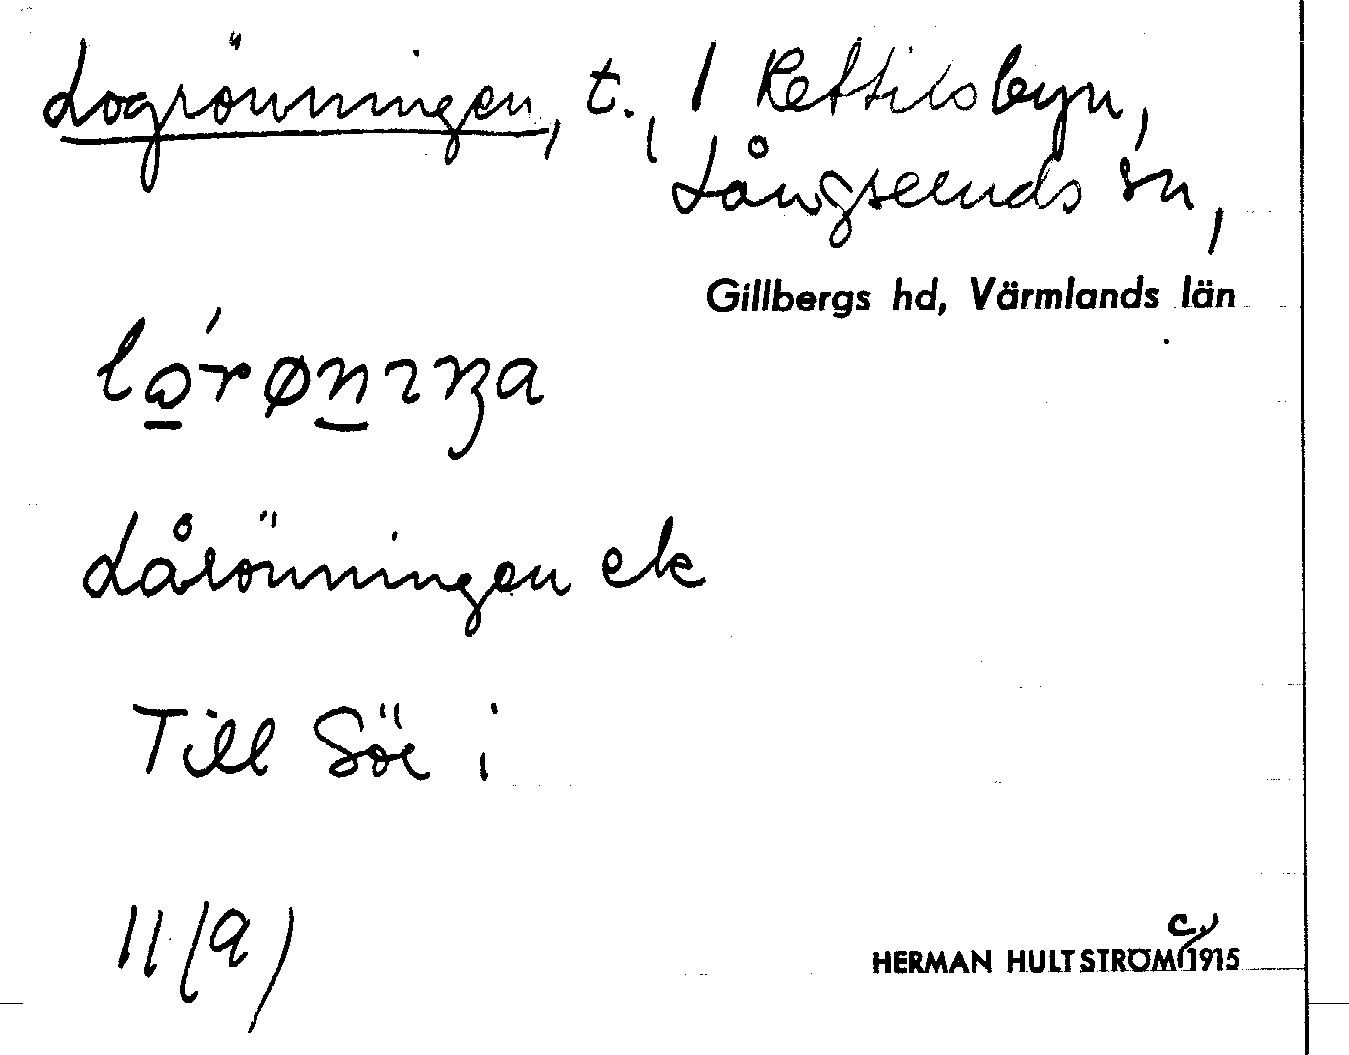 Logrönningen, t., 1 Kettilsbyn,
Långseruds sn,
Gillbergs hd, Värmlands län
Lårönningen ek
Till Sör i
11(a)
HERMAN HULTSTRÖM c. 1915